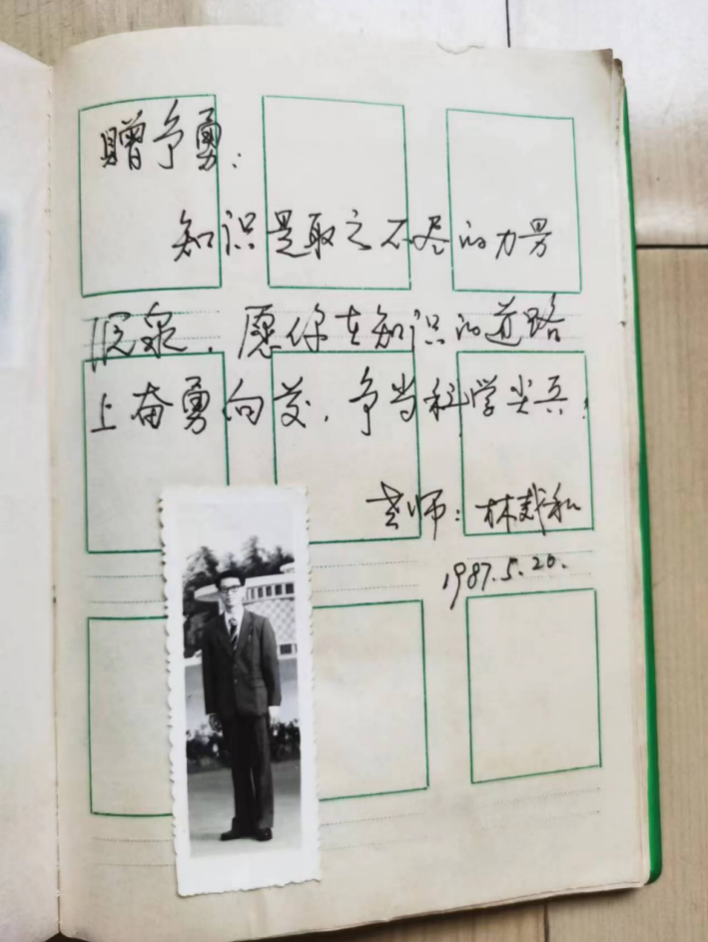 赠争勇：
知识是取之不尽的力量
源泉，愿你在知识的道路
上奋勇向前，争当科学尖兵！
老师：林
1987.5.20.